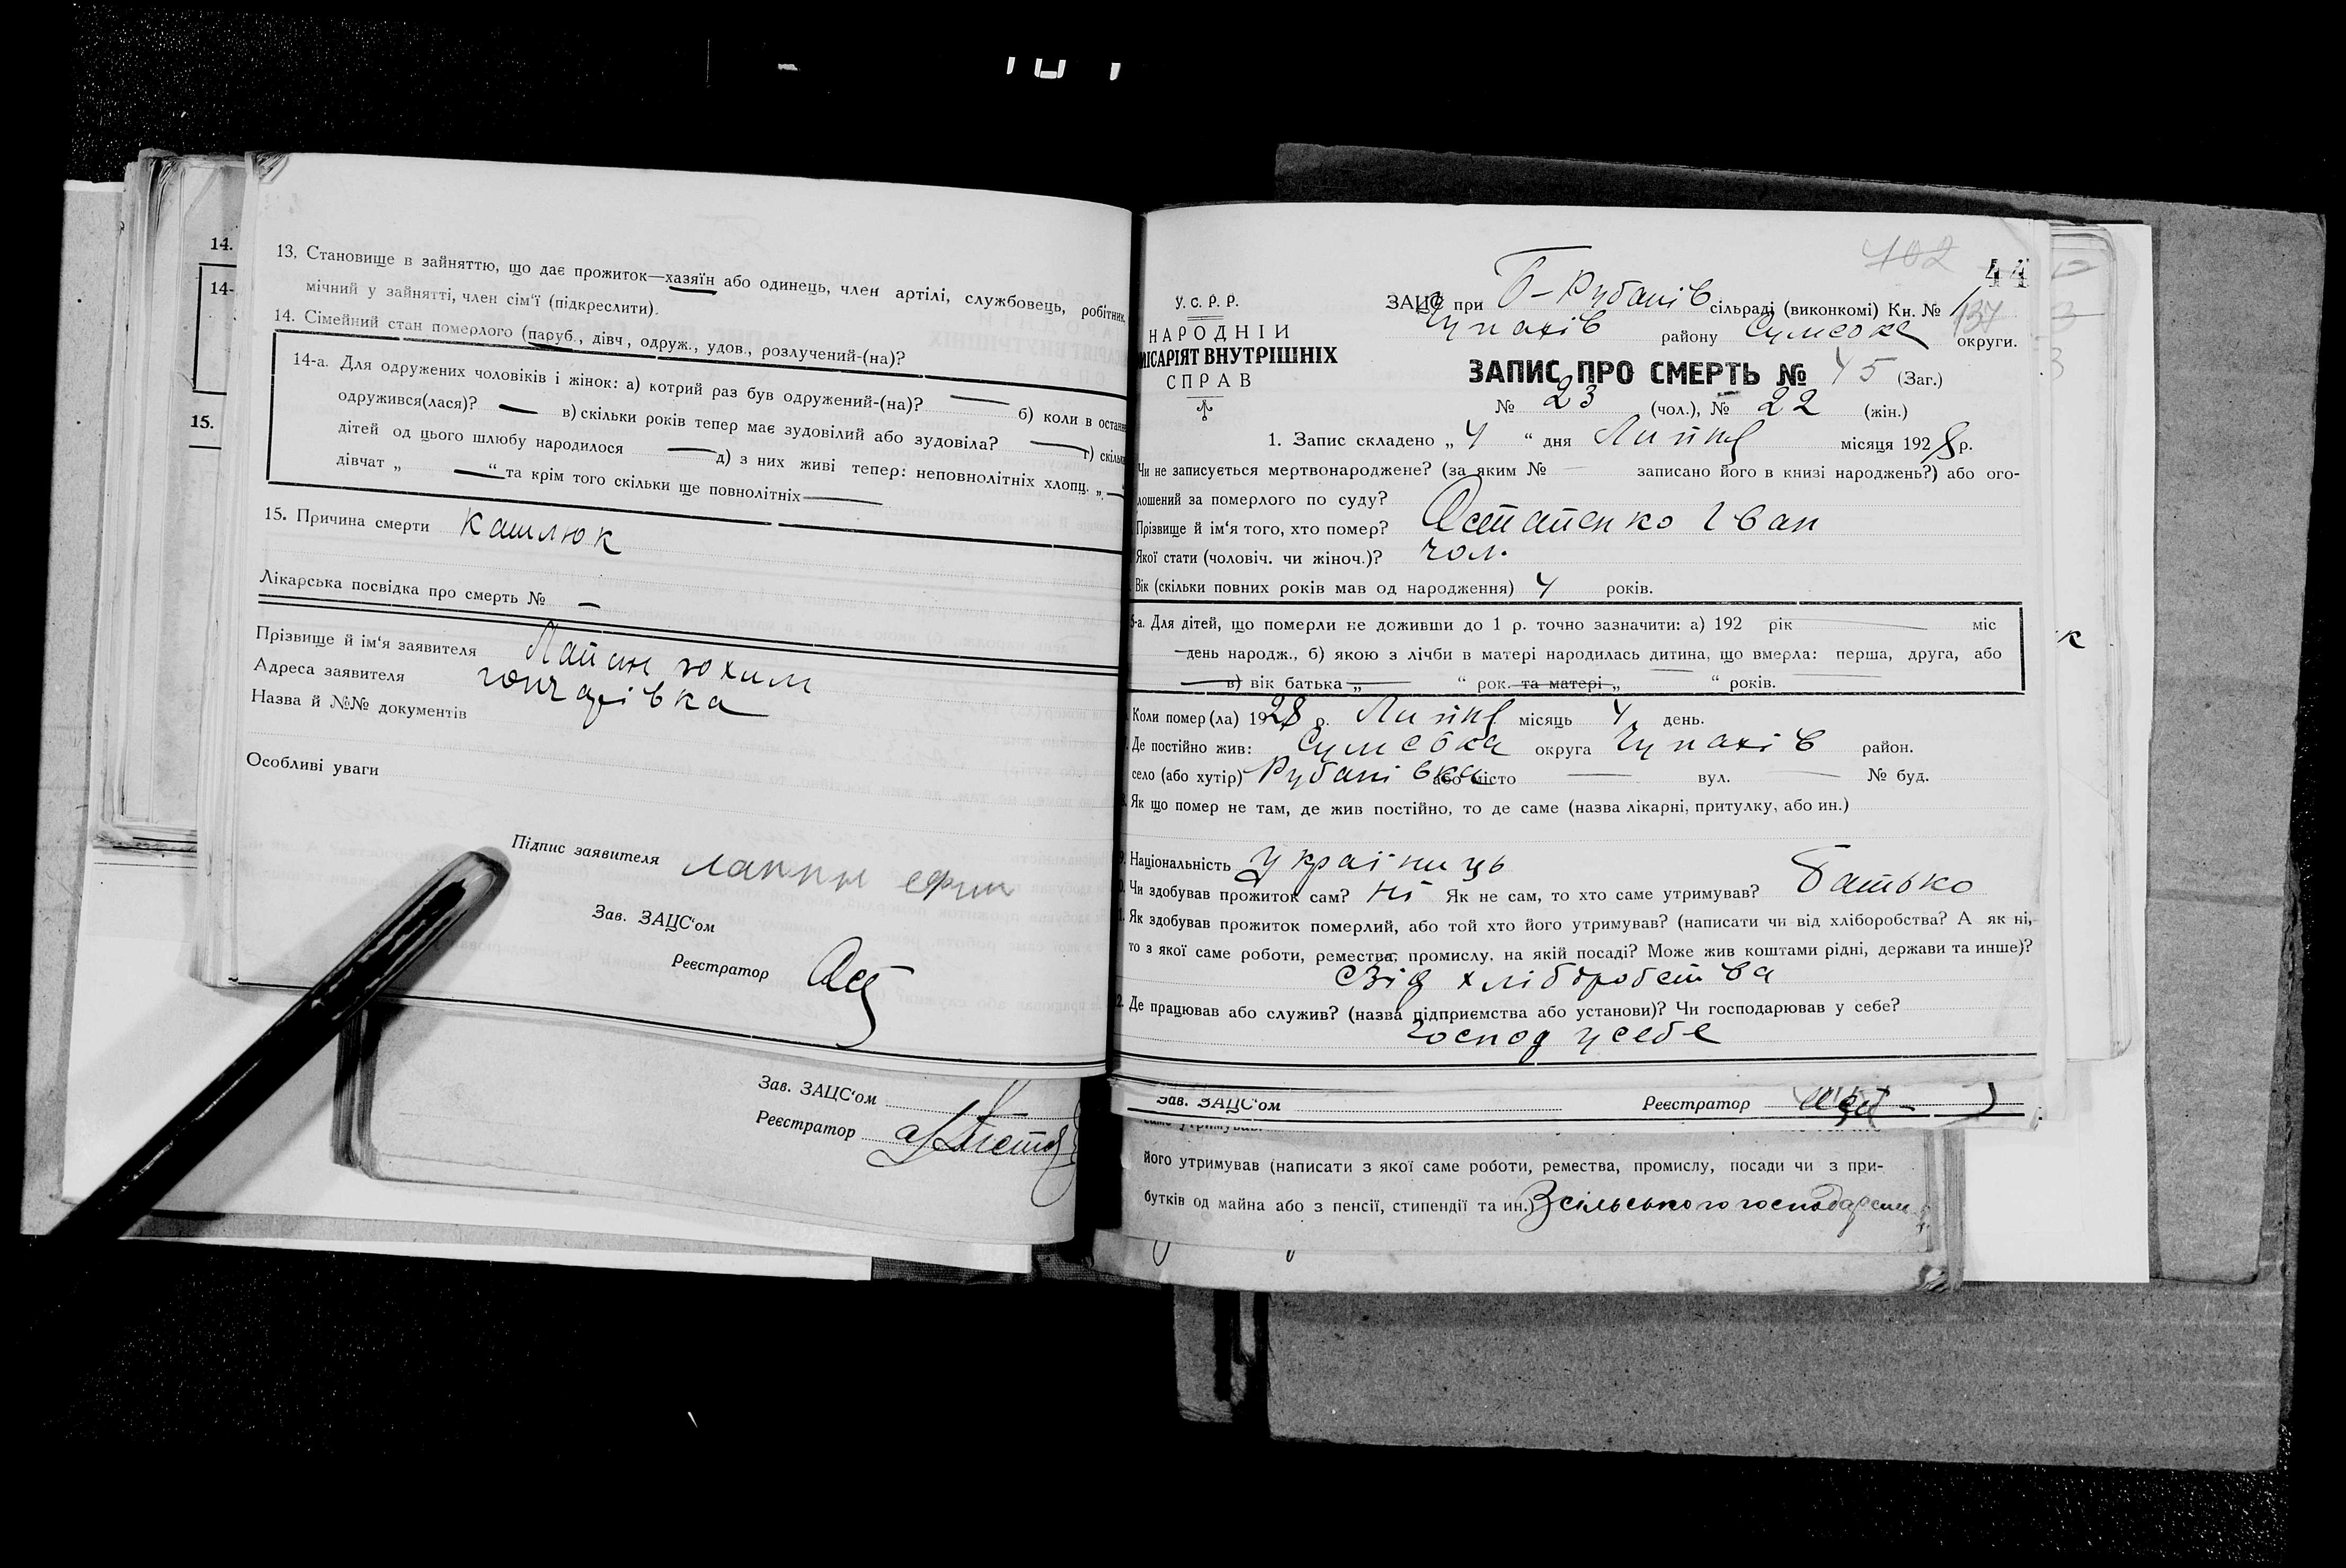 14.
14-
15.
13. Становище в зайняттю, що дає прожиток—хазяїн або одинець, член артілі, службовець, робітник,
мічний у зайнятті, член сім'ї (підкреслити).
14. Сімейний стан померлого (паруб., дівч, одруж., удов., розлучений-(на)?
14-а. Для одружених чоловіків і жінок: а) котрий раз був одружений-(на)? — б) коли в остан
одружився(лася)? — в) скільки років тепер має зудовілий або зудовіла? — г) скільк
дітей од цього шлюбу народилося — д) з них живі тепер: неповнолітніх хлопц. „ —
дівчат „ — “ та крім того скільки ще повнолітніх —
15. Причина смерти кашлюк
Лікарська посвідка про смерть № —
Прізвище й ім‘я заявителя
Адреса заявителя гончарівка
Назва й №№ документів
Особливі уваги
Підпис заявителя
Зав. ЗАЦС‘ом
Реєстратор Ост
Зав. ЗАЦС‘ом
Реєстратор
402
44
У. С. Р. Р.
НАРОДНІЙ
МІСАРІЯТ ВНУТРІШНІХ
СПРАВ
ЗАЦС при Б-Рубанів сільраді (виконкомі) Кн. №
Чупахів району Сумська округи.
ЗАПИС ПРО СМЕРТЬ № 45 (Заг.)
№ 23 (чол.), № 22 (жін.)
1. Запис складено „ 4 “ дня Липня місяця 1928 р.
Чи не записується мертвонароджене? (за яким № — записано його в книзі народжень?) або ого-
лошений за померлого по суду?
Прізвище й ім‘я того, хто помер? Остапенко Іван
Якої стати (чоловіч. чи жіноч.)? чол.
Вік (скільки повних років мав од народження) 4 років.
5-а. Для дітей, що померли не доживши до 1 р. точно зазначити: а) 192 рік — міс
— день народж., б) якою з лічби в матері народилась дитина, що вмерла: перша, друга, або
— в) вік батька „ — “ рок. та матері „ — “ років.
Коли помер(ла) 1928 р. Липня місяць 4 день.
Де постійно жив: Сумська округа Чупахів район.
село (або хутір) Рубанівка або місто — вул. — № буд.
Як що помер не там, де жив постійно, то де саме (назва лікарні, притулку, або ин.)
9. Національність україниць
Чи здобував прожиток сам? ні Як не сам, то хто саме утримував? батько
Як здобував прожиток померлий, або той хто його утримував? (написати чи від хліборобства? А як ні,
то з якої саме роботи, ремества, промислу, на якій посаді? Може жив коштами рідні, держави та инше)?
Від хліборобства
2. Де працював або служив? (назва підприємства або установи)? Чи господарював у себе?
господ у себе
Зав. ЗАЦС‘ом Реєстратор
його утримував (написати з якої саме роботи, ремества, промислу, посади чи з при-
бутків од майна або з пенсії, стипендії та ин.) З сільського господарств